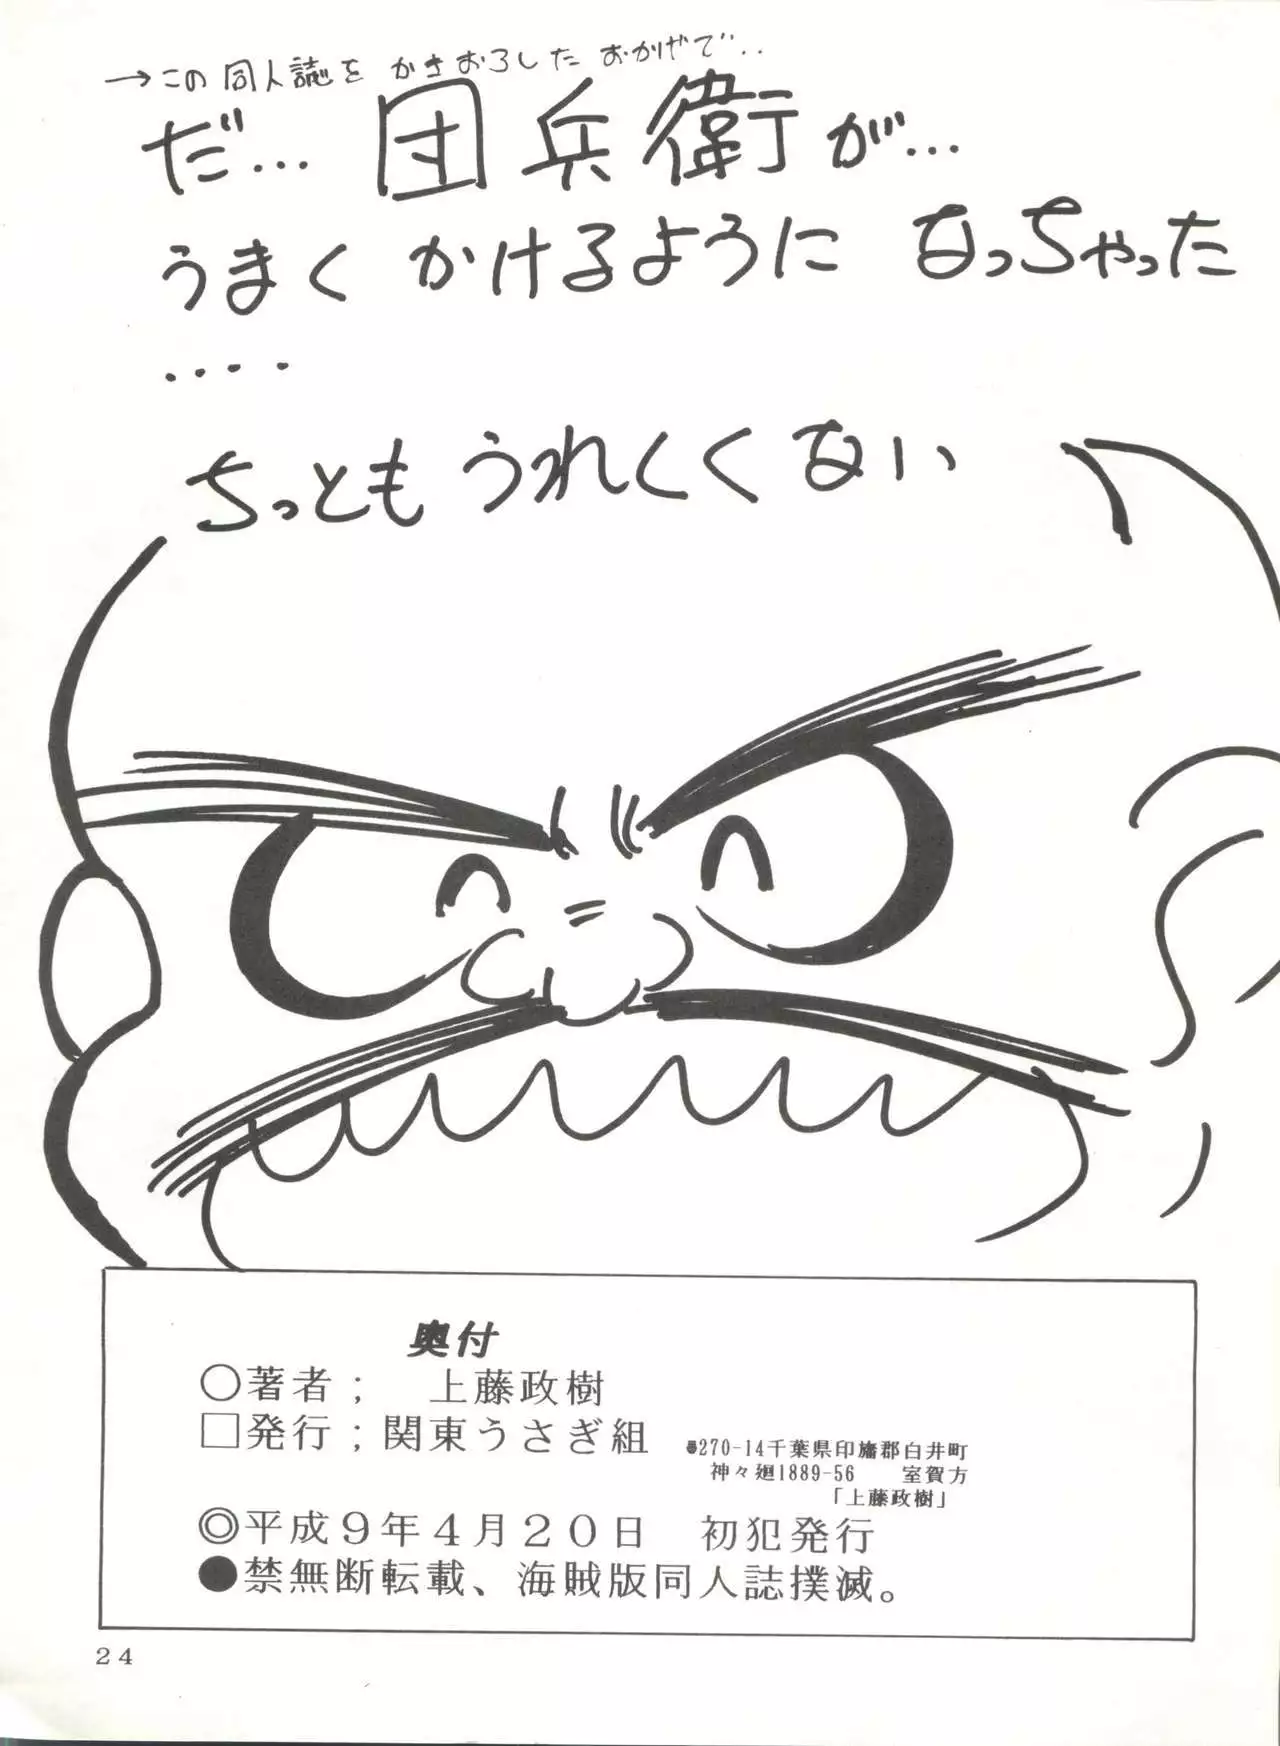 →この同人誌をかきおろしたおかげで‥
だ…団兵衛が…
うまくかけるようになっちゃった
‥‥
ちっともうれしくない
奥付
○著者；　上藤政樹
□発行；関東うさぎ組
〠270-14千葉県印旛郡白井町
神々廻1889-56　　室賀方
「上藤政樹」
◎平成９年４月２０日　初犯発行
●禁無断転載、海賊版同人誌撲滅。
24